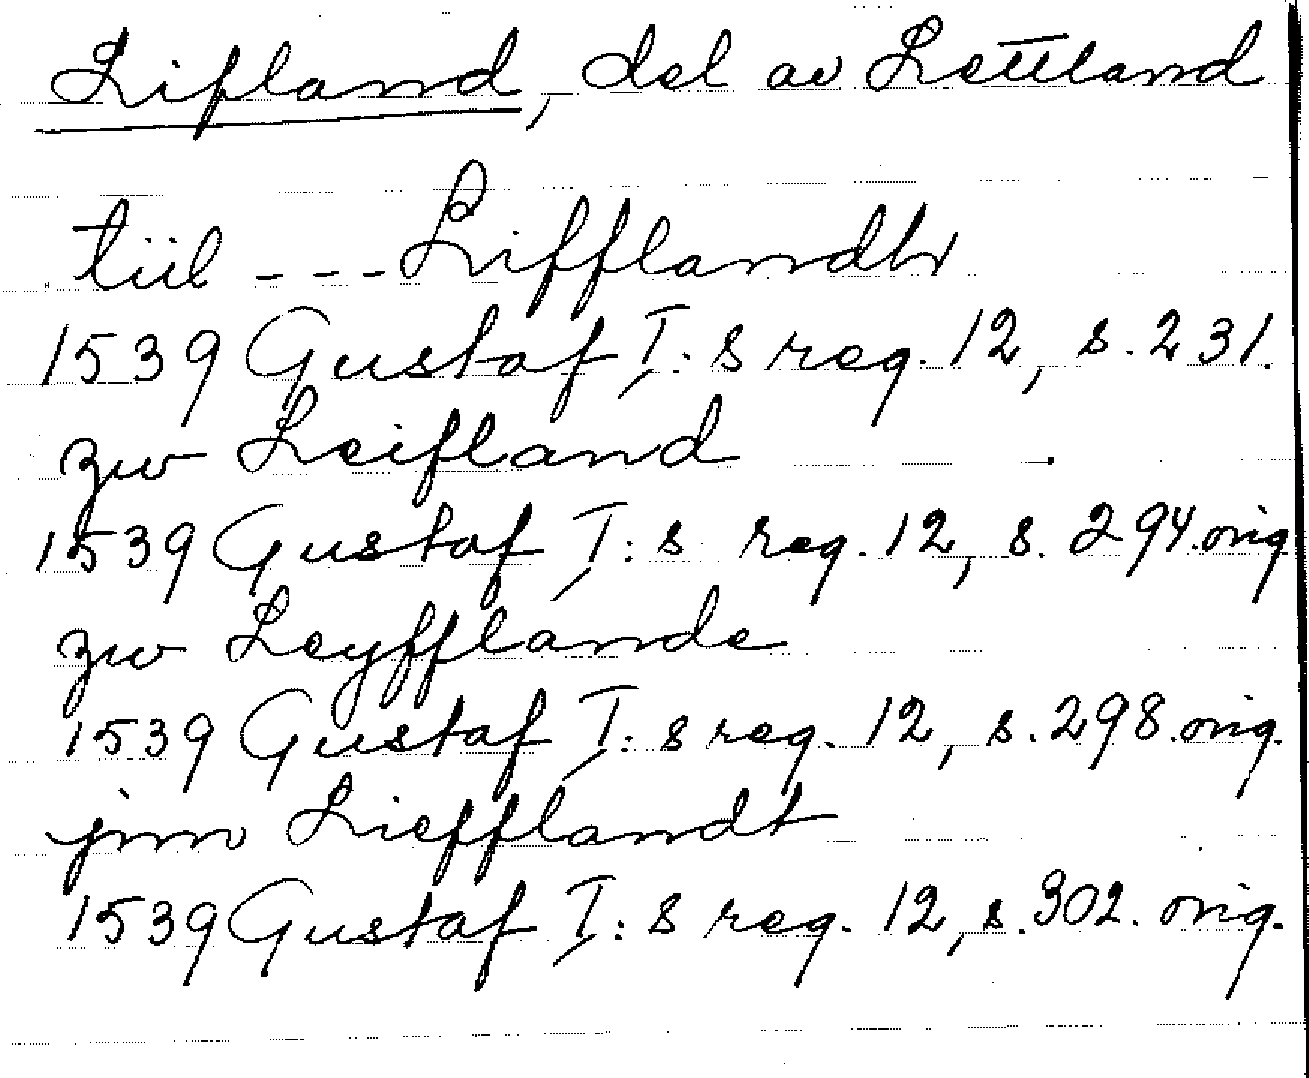 Lifland, del av Lettland
tiil - - - Lifflandh
1539 Gustaf I:s reg. 12, s. 231.
zw Leifland
1539 Gustaf I:s reg. 12, s. 294. orig.
zw Leyfflande
1539 Gustaf I:s reg. 12, s. 298. orig.
jnn Liefflandt
1539 Gustaf I:s reg. 12, s. 302. orig.